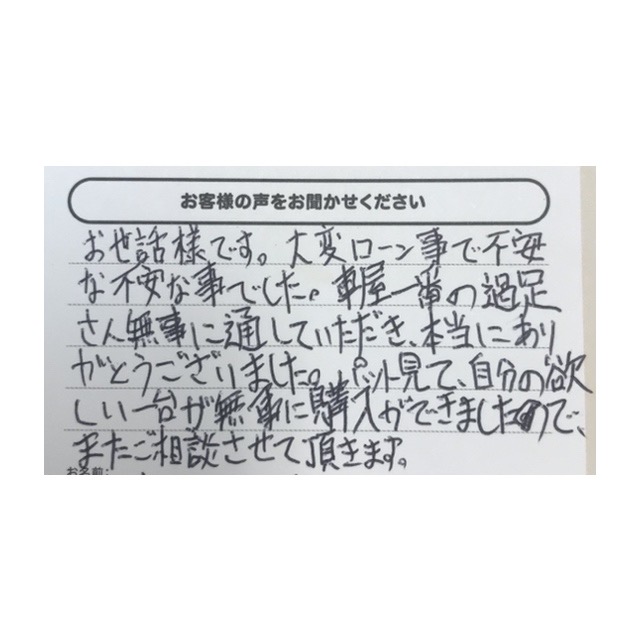 お客様の声をお聞かせください
お世話様です。大変ローン事で不安
な不安な事でした。車屋一番の過足
さん無事に通していただき、本当にあり
がとうございました。パット見て、自分の欲
しい一台が無事に購入ができましたので、
またご相談させて頂きます。
お名前: